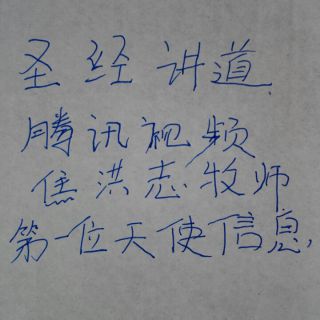 圣经讲道.
腾讯视频
焦洪志牧师
第一位天使信息,